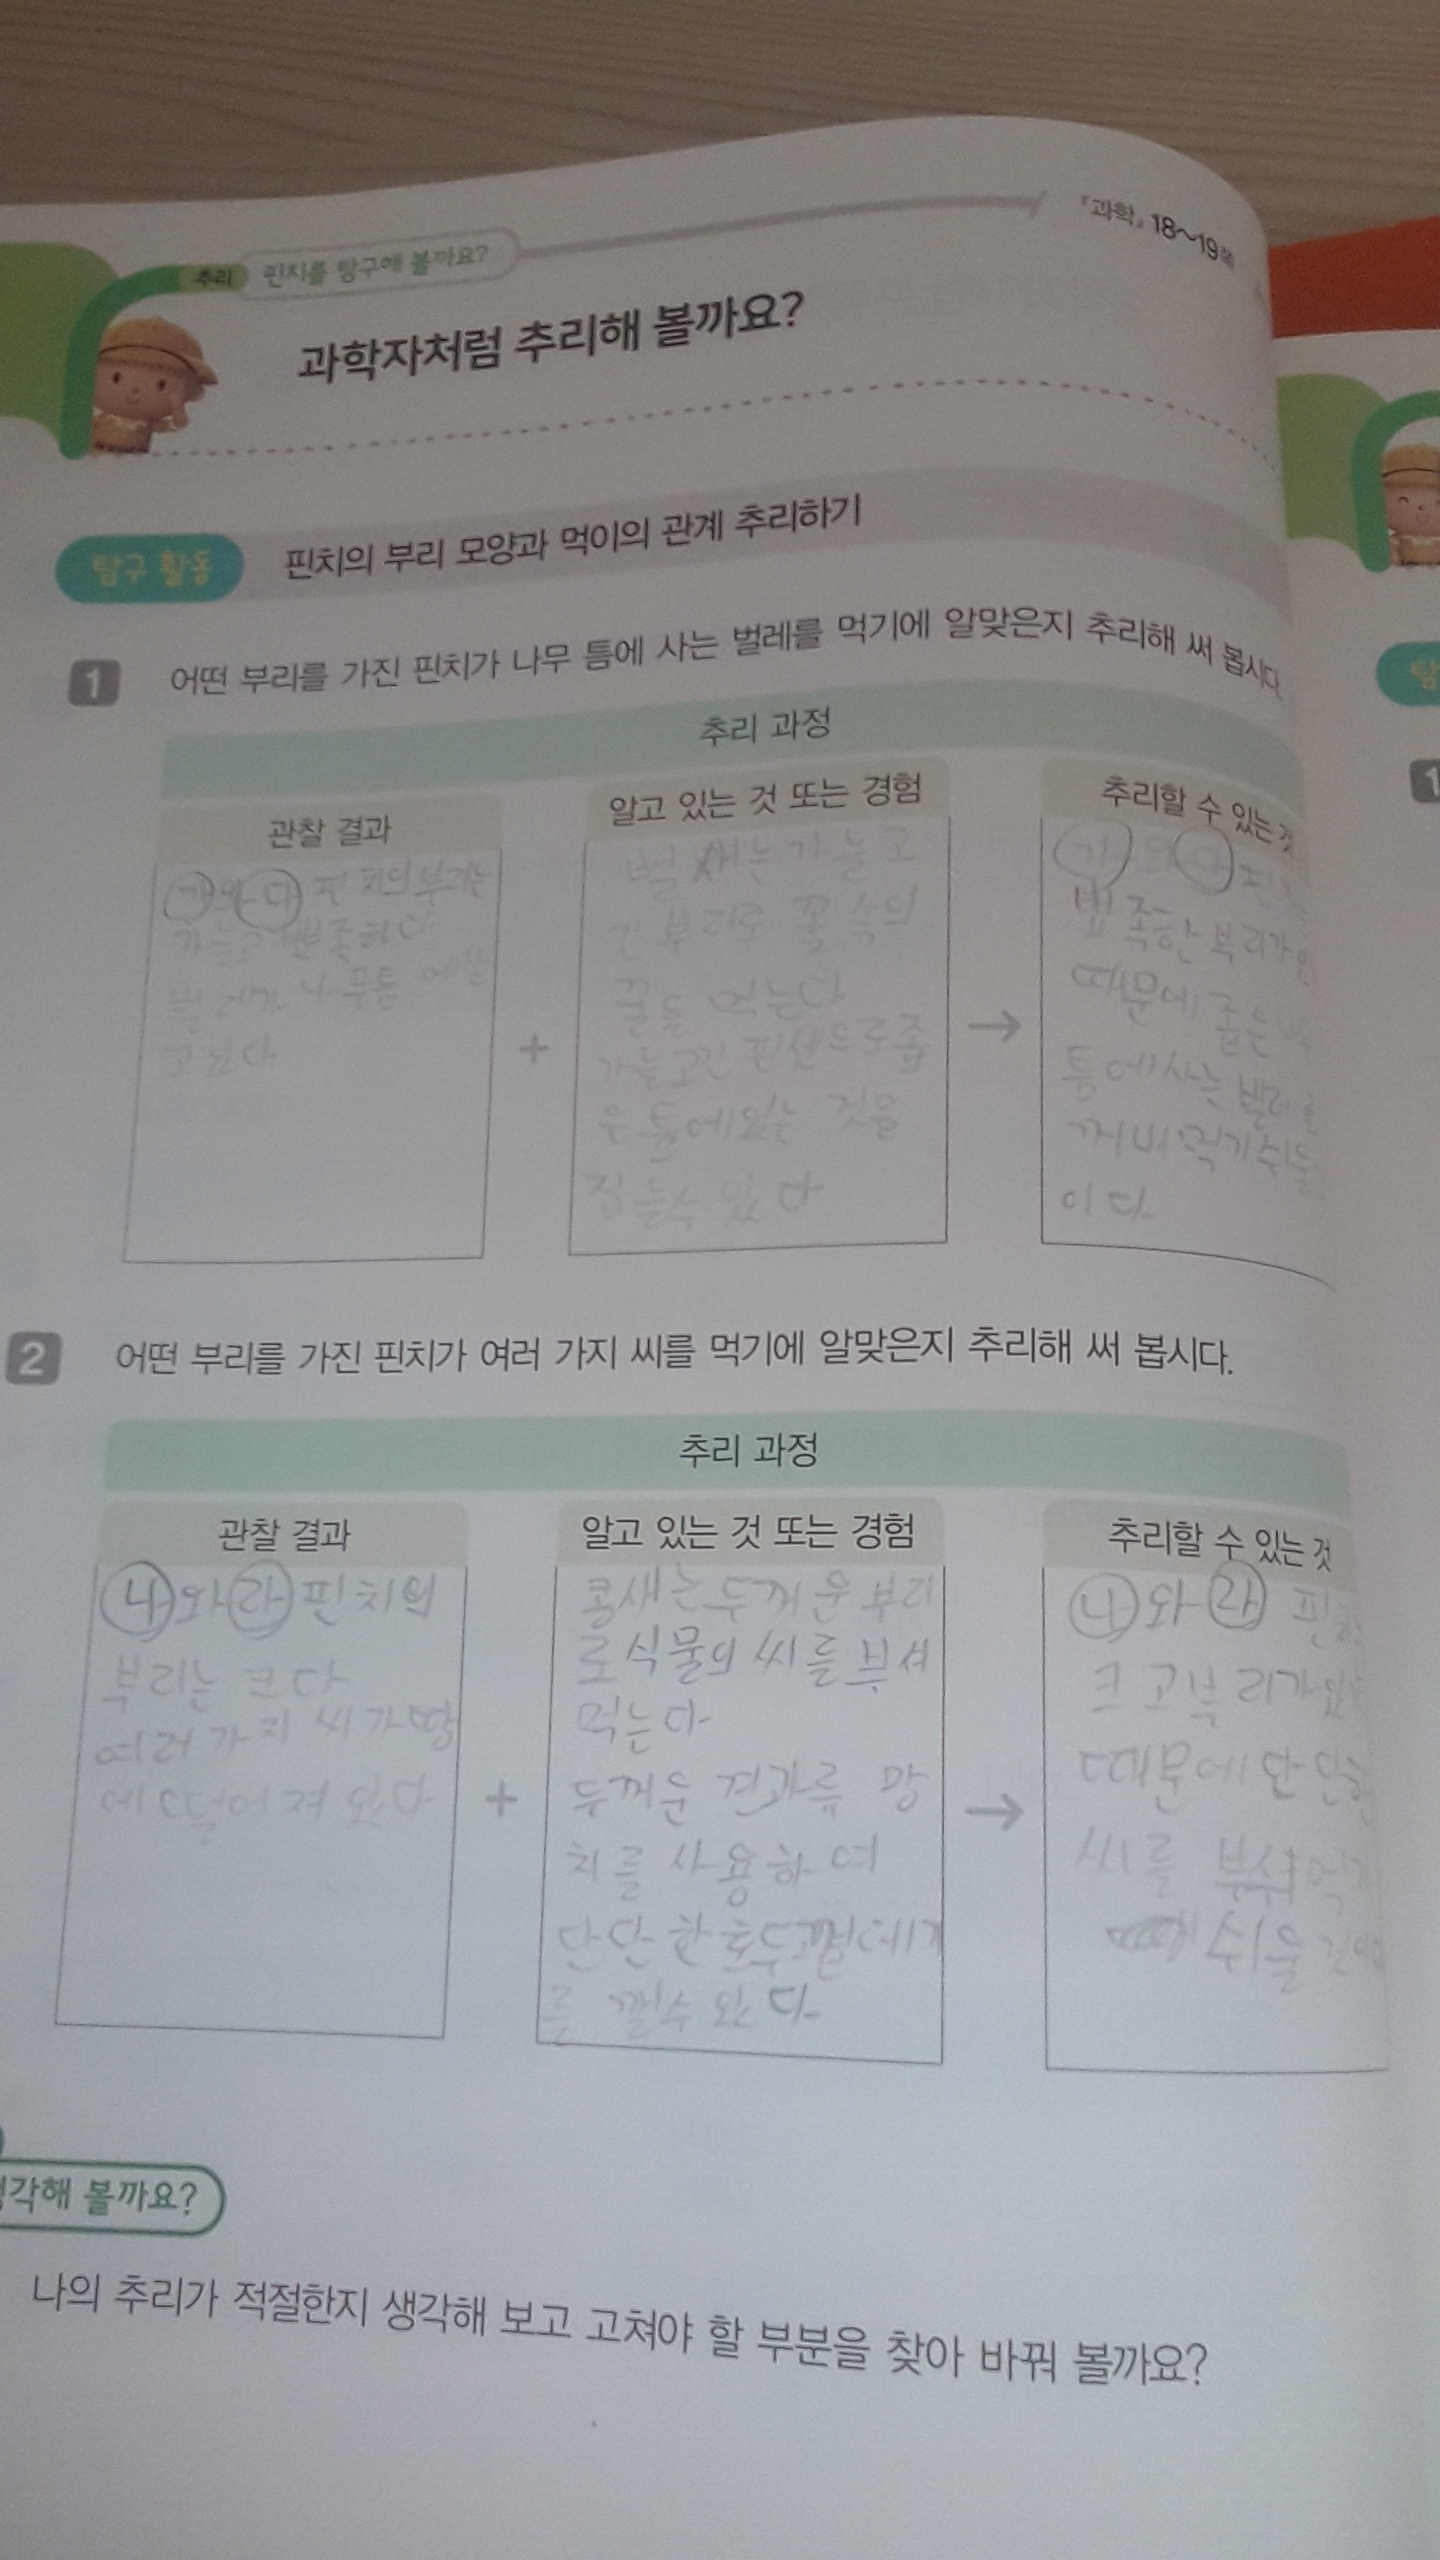 『과학』 18~19쪽
추리 핀치를 탐구해 볼까요?
과학자처럼 추리해 볼까요?
탐구 활동 핀치의 부리 모양과 먹이의 관계 추리하기
1 어떤 부리를 가진 핀치가 나무 틈에 사는 벌레를 먹기에 알맞은지 추리해 써 봅시다.
추리 과정
관찰 결과
가와 다 핀치의 부리는
가늘고 뾰족하다
벌레가 나무틈에 살
고 있다
+
알고 있는 것 또는 경험
벌새는 가늘고
긴 부리로 꽃 속의
꿀을 먹는다
가늘고 긴 핀셋으로 좁
은 틈에 있는 것을
집을 수 있다
→
추리할 수 있는 것
가와 다
뾰족한 부리가
때문에 좁은
틈에 사는 벌레를
이다
2 어떤 부리를 가진 핀치가 여러 가지 씨를 먹기에 알맞은지 추리해 써 봅시다.
추리 과정
관찰 결과
나와 라 핀치의
부리는 크다
여러가지 씨가 땅
에 떨어져 있다
+
알고 있는 것 또는 경험
콩새는 두꺼운 부리
로 식물의 씨를 부셔
먹는다
두꺼운 견과류 망
치를 사용하여
단단한 호두
를 깰수 있다
→
추리할 수 있는 것
나와 라
크고 부리가
때문에 단단한
씨를 부숴
쉬울
생각해 볼까요?
나의 추리가 적절한지 생각해 보고 고쳐야 할 부분을 찾아 바꿔 볼까요?
탐
1